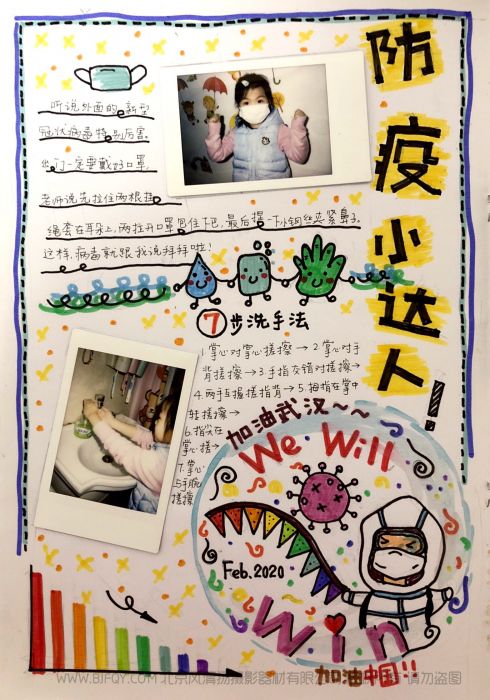 防疫小达人!
听说外面的新型
冠状病毒特别厉害.
出门一定要戴好口罩.
老师说先拉住两根挂
绳套在耳朵上,两拉开口罩包住下巴,最后捏一下小钢丝夹紧鼻子.
这样,病毒就跟我说拜拜啦!
⑦步洗手法
1.掌心对掌心搓擦→2.掌心对手
背搓擦→3手指交错对搓擦→
4.两手互握搓指背→5.拇指在掌中
转搓擦→
6.指尖在
掌心搓→
7.掌心
与手腕
搓擦
加油武汉~~
We Will
Feb.2020
Win
加油中国!!
WWW.BJFQY.COM